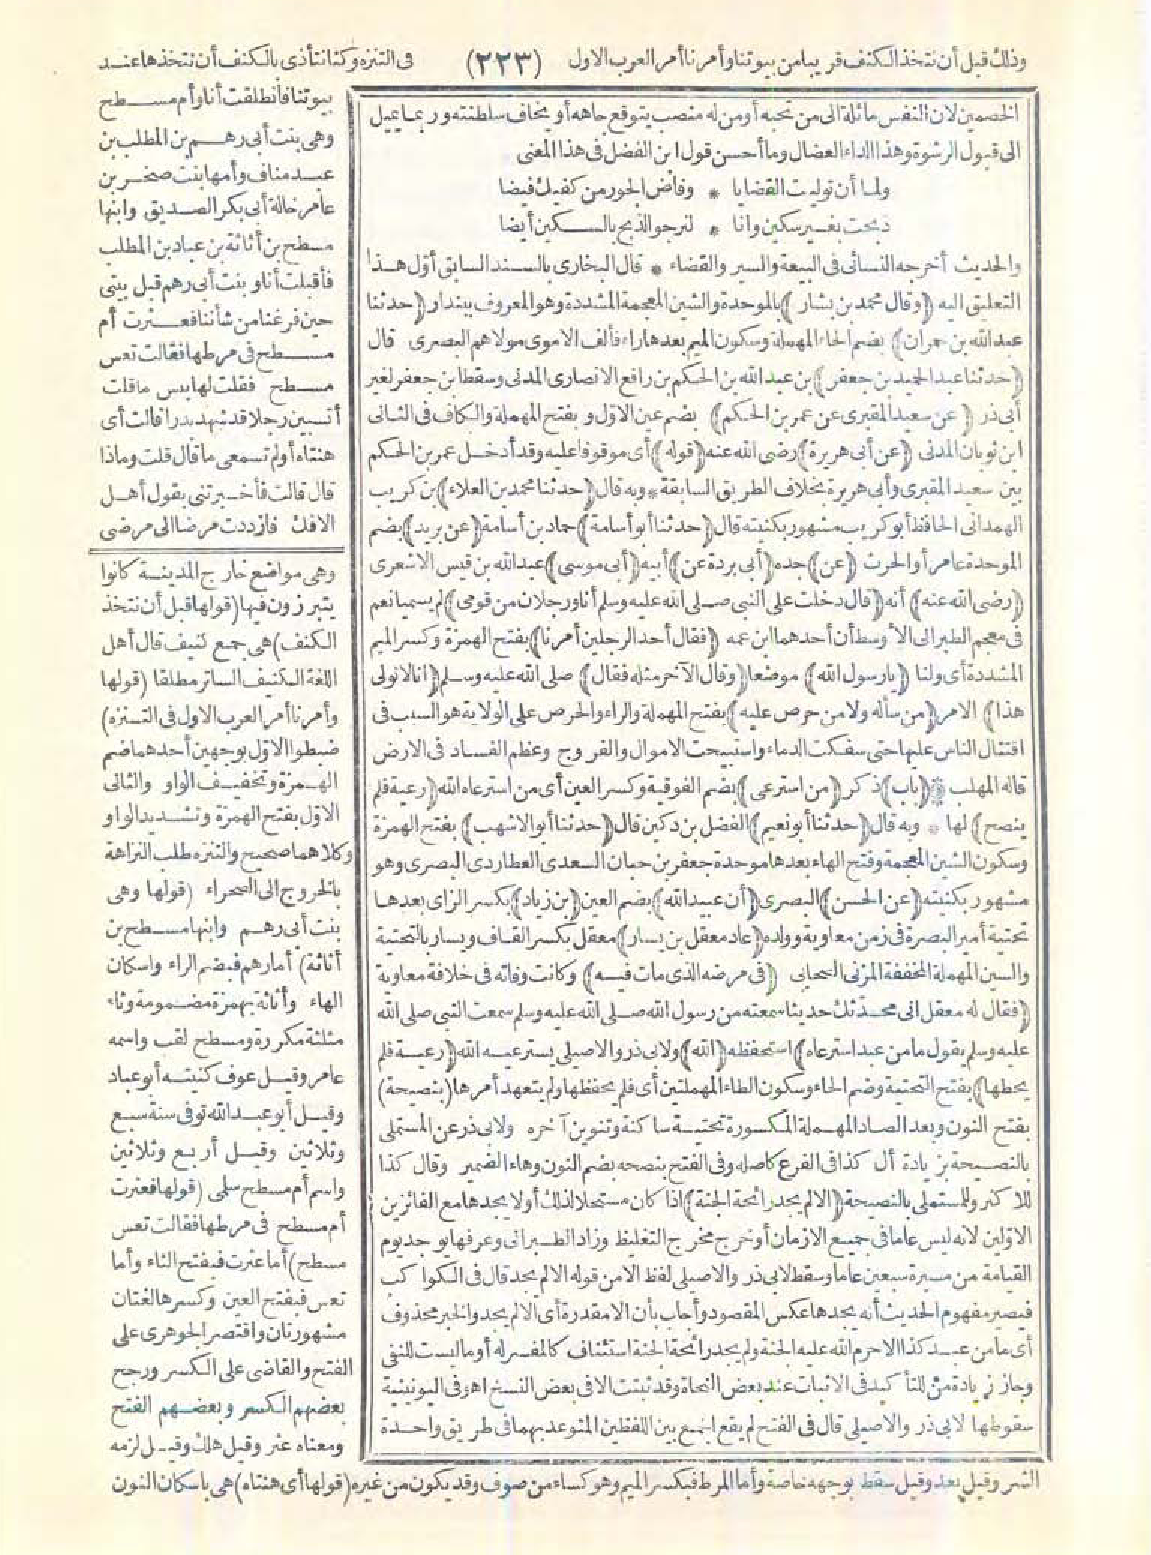 وذلك قبل أن نتخذ الكنف قريبا من بيوتنا وأمرنا أمر العرب الاول (٢٢٣) فى التنزه وكنا نتأذى بالكنف أن نتخذها عند
الخصمين لان النفس مائلة الى من تحبه أو من له منصب يتوقع جاهه أو يخاف سلطنته وربما يميل
الى قبول الرشوة وهذا الداء العضال وما أحسن قول ابن الفضل فى هذا المعنى
ولما أن توليت القضايا * وفاض الجور من كفيك فيضا
ذبحت بغير سكين وانا * لنرجو الذبح بالسكين أيضا
والحديث أخرجه النسائى فى البيعة والسير والقضاء * قال البخارى بالسند السابق أول هذا
التعليق اليه (وقال محمد بن بشار) بالموحدة والشين المعجمة المشددة وهو المعروف ببندار (حدثنا
عبد الله بن حمران) بضم الحاء المهملة وسكون الميم بعدها راء فألف الاموى مولاهم البصرى قال
(حدثنا عبد الحميد بن جعفر) بن عبد الله بن الحكم بن رافع الانصارى المدنى وسقط ابن جعفر لغير
أبى ذر (عن سعيد المقبرى عن عمر بن الحكم) بضم عين الاول وبفتح المهملة والكاف فى الثانى
ابن ثوبان المدنى (عن أبى هريرة) رضى الله عنه (قوله) أى موقوفا عليه وقد أدخل عمر بن الحكم
بين سعيد المقبرى وأبى هريرة بخلاف الطريق السابقة * وبه قال (حدثنا محمد بن العلاء) بن كريب
الهمدانى الحافظ أبو كريب مشهور بكنيته قال (حدثنا أبو أسامة) حماد بن أسامة (عن بريد) بضم
الموحدة عامر أو الحرث (عن) جده (أبى بردة عن) أبيه (أبى موسى) عبد الله بن قيس الاشعرى
(رضى الله عنه) أنه (قال دخلت على النبى صلى الله عليه وسلم أنا ورجلان من قومى) لم يسميا نعم
فى معجم الطبرانى الأوسط أن أحدهما ابن عمه (فقال أحد الرجلين أمرنا) بفتح الهمزة وكسر الميم
المشددة أى ولنا (يا رسول الله) موضعا (وقال الآخر مثله فقال) صلى الله عليه وسلم (انا لا نولى
هذا) الامر (من سأله ولا من حرص عليه) بفتح المهملة والراء والحرص على الولاية هو السبب فى
اقتتال الناس عليها حتى سفكت الدماء واستبيحت الاموال والفروج وعظم الفساد فى الارض
قاله المهلب * (باب) ذكر (من استرعى) بضم الفوقية وكسر العين أى من استرعاه الله (رعية فلم
ينصح) لها * وبه قال (حدثنا أبو نعيم) الفضل بن دكين قال (حدثنا أبو الاشهب) بفتح الهمزة
وسكون الشين المعجمة وفتح الهاء بعدها موحدة جعفر بن حيان السعدى العطاردى البصرى وهو
مشهور بكنيته (عن الحسن) البصرى (أن عبيد الله) بضم العين (بن زياد) بكسر الزاى بعدها
تحتية أمير البصرة فى زمن معاوية وولده (عاد معقل بن يسار) معقل بكسر القاف ويسار بالتحتية
والسين المهملة المخففة المزنى الصحابى (فى مرضه الذى مات فيه) وكانت وفاته فى خلافة معاوية
(فقال له معقل انى محدثك حديثا سمعته من رسول الله صلى الله عليه وسلم سمعت النبى صلى الله
عليه وسلم يقول ما من عبد استرعاه) استحفظه (الله) ولابى ذر والاصيلى يسترعيه الله (رعية فلم
يحطها) بفتح التحتية وضم الحاء وسكون الطاء المهملتين أى فلم يحفظها ولم يتعهد أمرها (بنصيحة)
بفتح النون وبعد الصاد المهملة المكسورة تحتية ساكنة وتنوين آخره ولابى ذر عن المستملى
بالنصيحة بزيادة أل كذا فى الفرع كاصله وفى الفتح بنصحه بضم النون وهاء الضمير وقال كذا
للاكثر وللمستملى بالنصيحة (الا لم يجد رائحة الجنة) اذا كان مستحلا لذلك أو لا يجدها مع الفائزين
الاولين لانه ليس عاما فى جميع الازمان أو خرج مخرج التغليظ وزاد الطبرانى وعرفها يوجد يوم
القيامة من مسيرة سبعين عاما وسقط لابى ذر والاصيلى لفظ الا من قوله الا لم يجد قال فى الكواكب
فيصير مفهوم الحديث أنه يجدها عكس المقصود وأجاب بأن الا مقدرة أى الا لم يجد والخبر محذوف
أى ما من عبد كذا الا حرم الله عليه الجنة ولم يجد رائحة الجنة استئناف كالمفسر له أو ما ليست للنفى
وجاز زيادة من للتأكيد فى الاثبات عند بعض النحاة وقد ثبتت الا فى بعض النسخ اه وفى اليونينية
سقوطها لابى ذر والاصيلى قال فى الفتح لم يقع الجمع بين اللفظين المتوعد بهما فى طريق واحدة
بيوتنا فانطلقت أنا وأم مسطح
وهى بنت أبى رهم بن المطلب بن
عبد مناف وأمها بنت صخر بن
عامر خالة أبى بكر الصديق وابنها
مسطح بن أثاثة بن عباد بن المطلب
فأقبلت أنا وبنت أبى رهم قبل بيتى
حين فرغنا من شأننا فعثرت أم
مسطح فى مرطها فقالت تعس
مسطح فقلت لها بئس ما قلت
أتسبين رجلا قد شهد بدرا قالت أى
هنتاه أو لم تسمعى ما قال قلت وماذا
قال قالت فأخبرتنى بقول أهل
الافك فازددت مرضا الى مرضى
وهى مواضع خارج المدينة كانوا
يتبرزون فيها (قولها قبل أن نتخذ
الكنف) هى جمع كنيف قال أهل
اللغة الكنيف الساتر مطلقا (قولها
وأمرنا أمر العرب الاول فى التنزه)
ضبطوا الاول بوجهين أحدهما ضم
الهمزة وتخفيف الواو والثانى
الاول بفتح الهمزة وتشديد الواو
وكلاهما صحيح والتنزه طلب النزاهة
بالخروج الى الصحراء (قولها وهى
بنت أبى رهم وابنها مسطح بن
أثاثة) أما رهم فبضم الراء واسكان
الهاء وأثاثة بهمزة مضمومة وثاء
مثلثة مكررة ومسطح لقب واسمه
عامر وقيل عوف كنيته أبو عباد
وقيل أبو عبد الله توفى سنة سبع
وثلاثين وقيل أربع وثلاثين
واسم أم مسطح سلمى (قولها فعثرت
أم مسطح فى مرطها فقالت تعس
مسطح) أما عثرت فبفتح الثاء وأما
تعس فبفتح العين وكسرها لغتان
مشهورتان واقتصر الجوهرى على
الفتح والقاضى على الكسر ورجح
بعضهم الكسر وبعضهم الفتح
ومعناه عثر وقيل هلك وقيل لزمه
الشر وقيل بعد وقيل سقط بوجهه خاصة وأما المرط فبكسر الميم وهو كساء من صوف وقد يكون من غيره (قولها أى هنتاه) هى باسكان النون